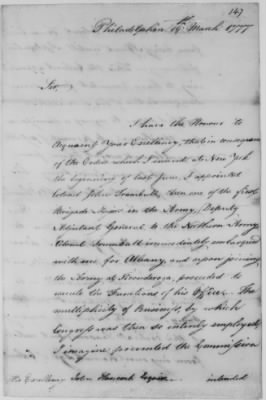 147
Philadelphia 19th March 1777
Sir,
I have the Honour to
Acquaint Your Excellency, that in consequence
of the Orders which I received at New York
the beginning of last June, I appointed
Colonel John Trumbull, then one of the first
Brigade Major in the Army, Deputy
Adjutant General to the Northern Army
Colonel Trumbull immediately embarqued
with me for Albany, and upon joining
the Army at Ticonderoga, proceeded to
execute the Functions of his Office. The
multiplicity of Business, by which
Congress was then so intirely employed,
I imagine prevented the Commission
His Excellency John Hancock Esquire intended